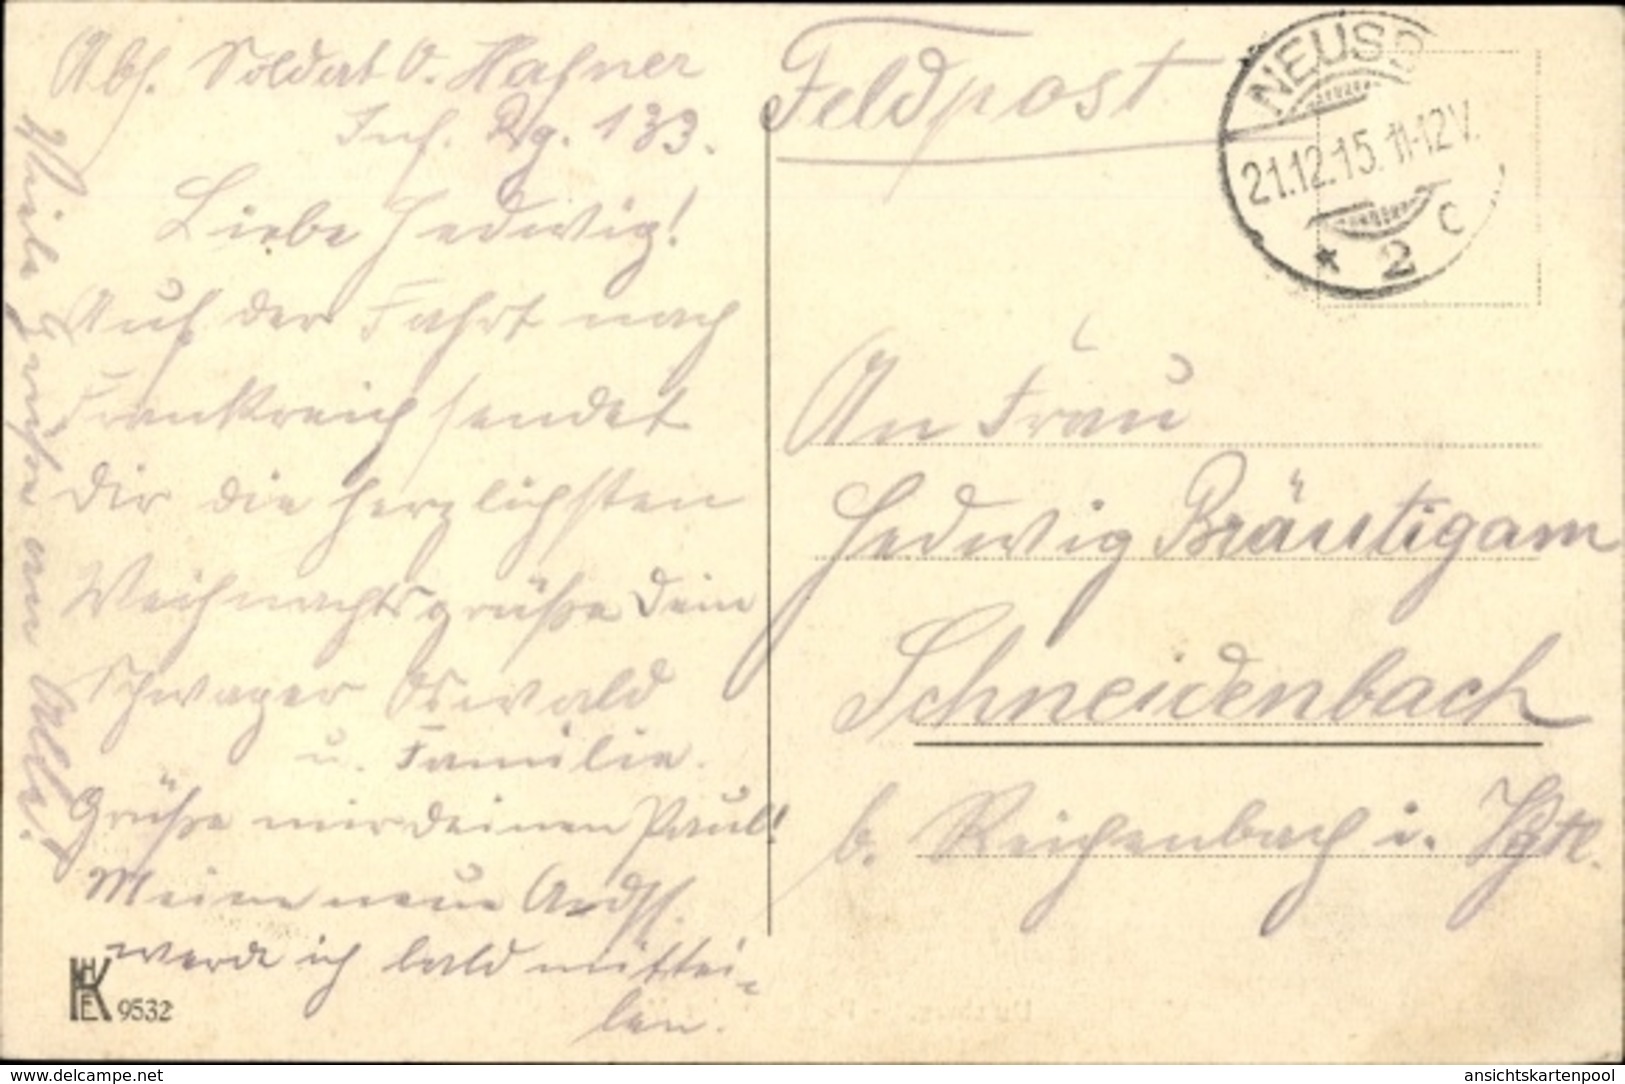 Abs. Soldat O. Hafner
Inf. Rg. 133.
Liebe Hedwig!
Auf der Fahrt nach
Frankreich sendet
Dir die herzlichsten
Weihnachtsgrüße Dein
Schwager Oswald
u. Familie.
Grüße mir deinen Paul!
Meine neue Adss.
werde ich bald mittei-
len.
Viele Grüße an Alle!
HKE 9532
Feldpost
NEUSS
21.12.15. 11-12V.
* 2 c
An Frau
Hedwig Bräutigam
Schneidenbach
b. Reichenbach i. Vgtl.
www.delcampe.net
ansichtskartenpool